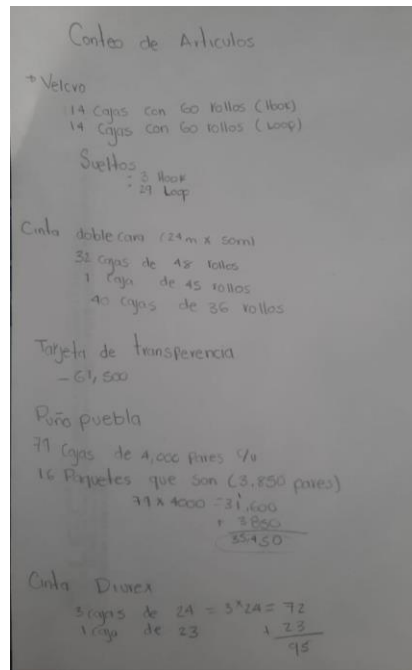 Conteo de Articulos
* Velcro
14 Cajas con 60 rollos (Hook)
14 Cajas con 60 rollos (Loop)
Sueltos
- 3 Hook
- 29 Loop
Cinta doble cara (24m x 50m)
32 cajas de 48 rollos
1 Caja de 45 rollos
40 cajas de 36 rollos
Tarjeta de transferencia
- 61,500
Puño puebla
79 Cajas de 4,000 Pares c/u
16 Paquetes que son (3,850 pares)
79 x 4000 = 31,600
+ 3850
35450
Cinta Diurex
3 cajas de 24 = 3*24 = 72
1 caja de 23 + 23
95